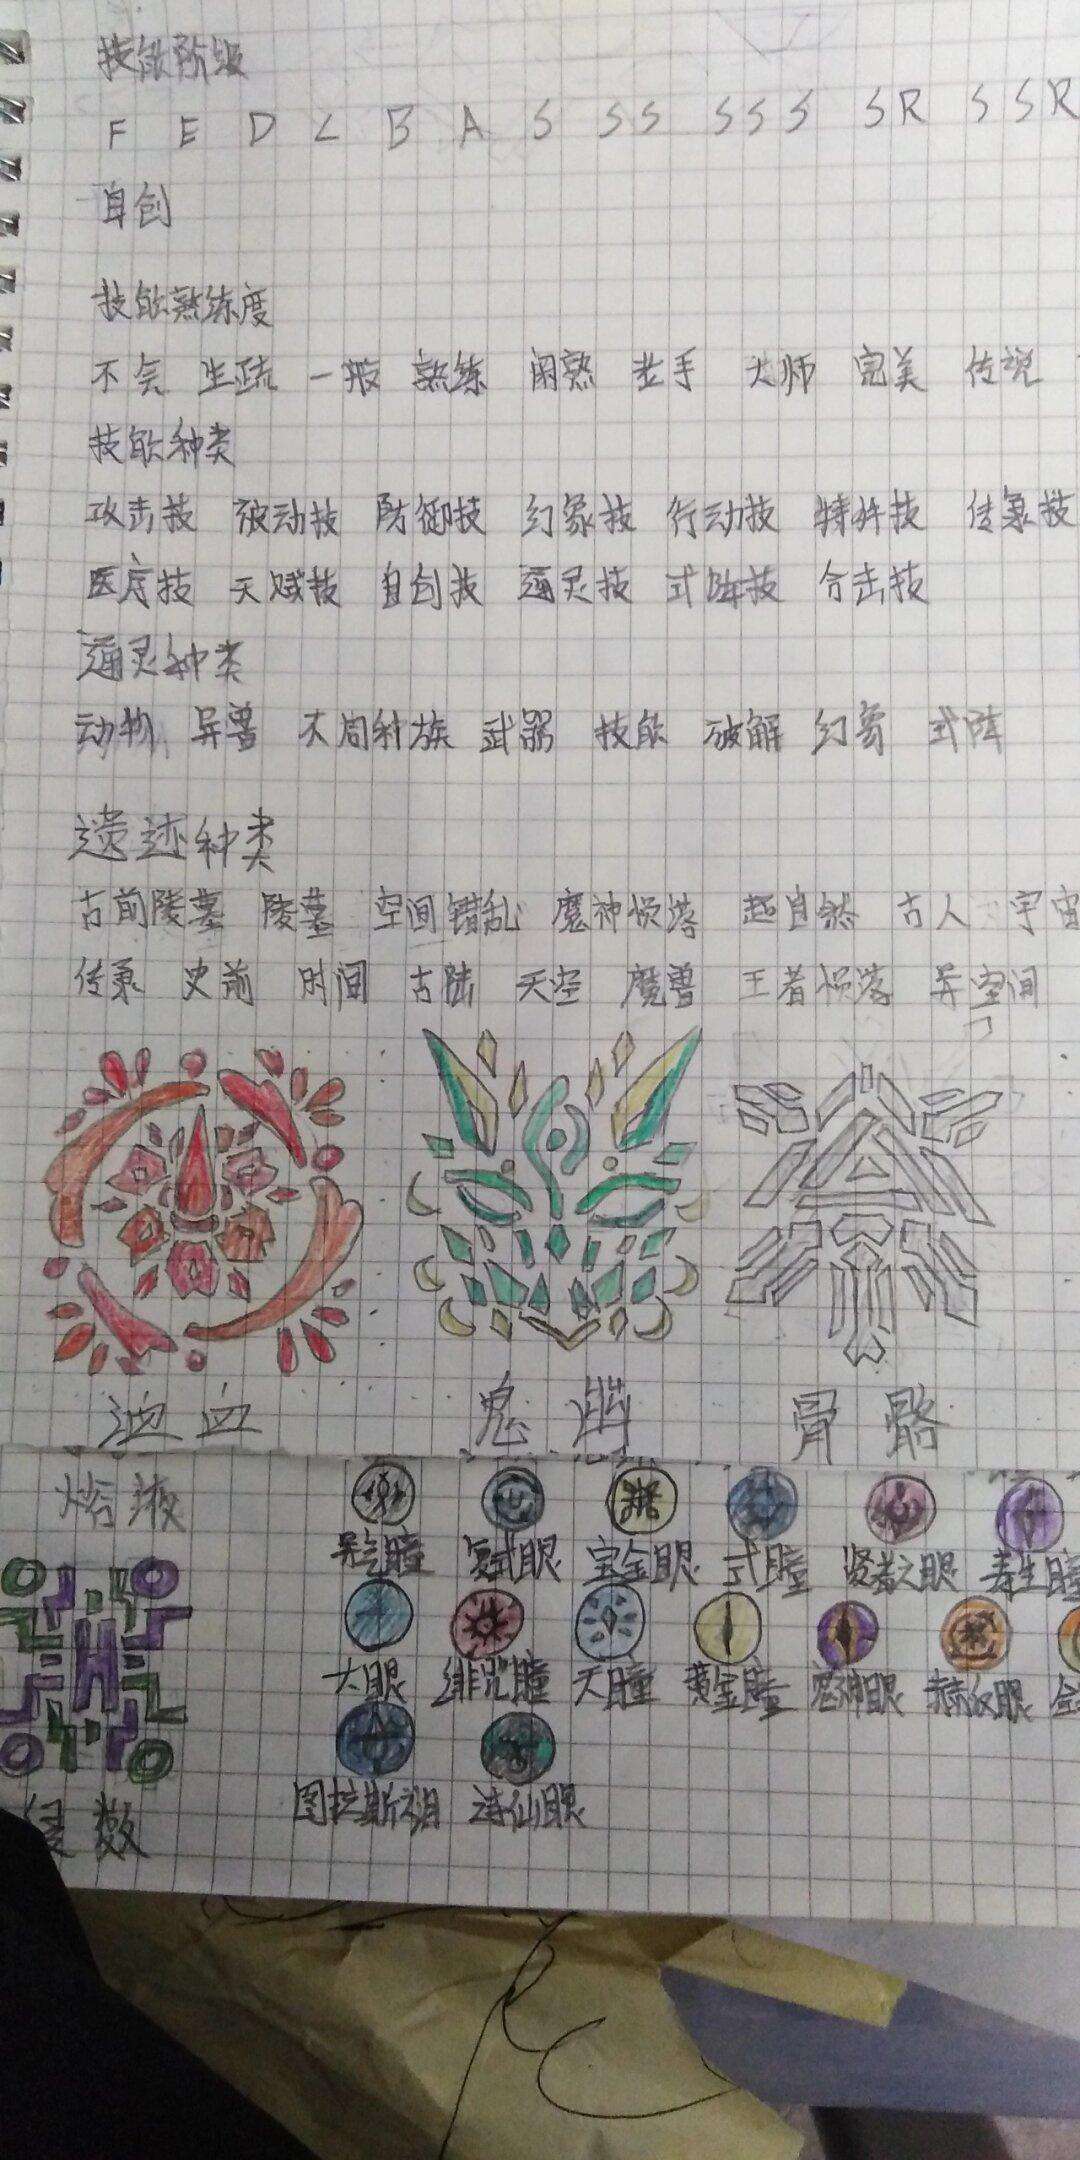 技能阶级
F E D C B A S SS SSS SR SSR
自创
技能熟练度
不会 生疏 一般 熟练 闲熟 老手 大师 完美 传说
技能种类
攻击技 被动技 防御技 幻象技 行动技 特殊技 传承技
医疗技 天赋技 自创技 通灵技 式阵技 合击技
通灵种类
动物 异兽 不同种族 武器 技能 破解 幻象 式阵
遗迹种类
古前陵墓 陵墓 空间错乱 魔神损落 超自然 古人 宇宙
传承 史前 时间 古陆 天空 魔兽 王者损落 异空间
血 鬼 骨骼
熔液
异气瞳 复式眼 宝金眼 式瞳 贤者之眼 寿生瞳
大眼 绯咒瞳 天瞳 黄金瞳 邪眼 赤红眼
图拉斯之眼 诗仙眼
数